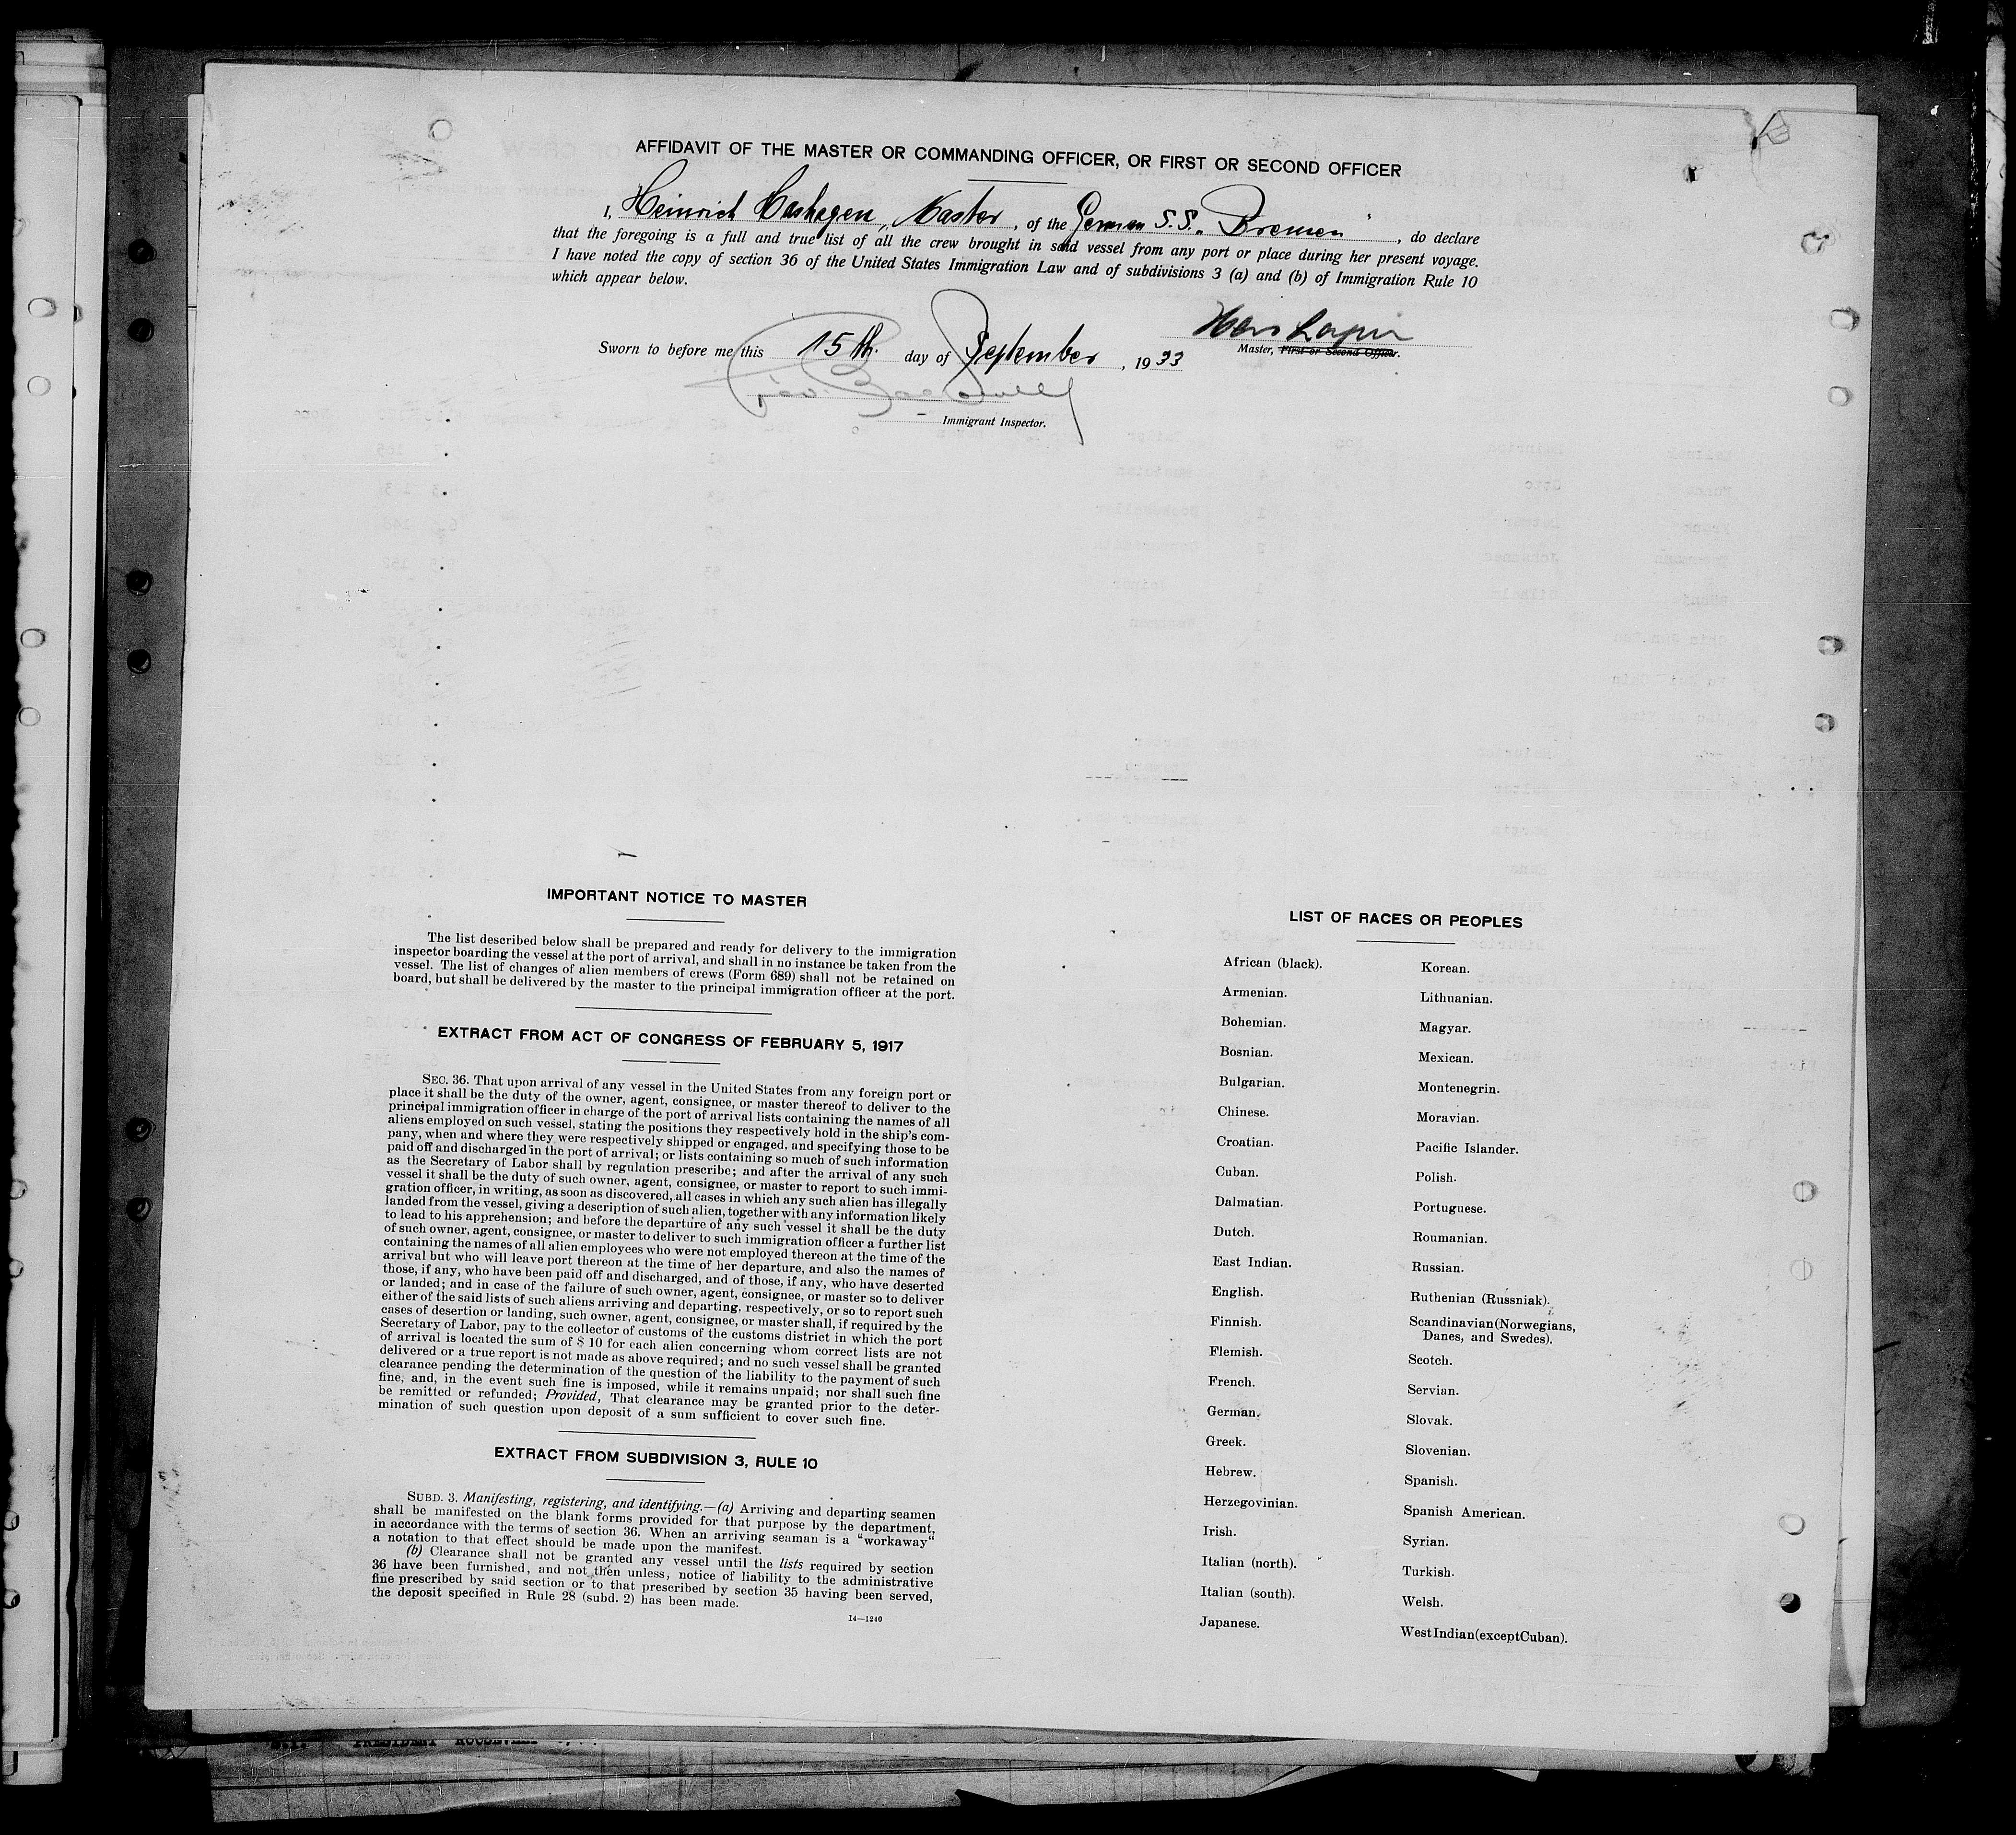 AFFIDAVIT OF THE MASTER OR COMMANDING OFFICER, OR FIRST OR SECOND OFFICER
I, Heinrich Hashagen, Master, of the German S.S. „Bremen", do declare
that the foregoing is a full and true list of all the crew brought in said vessel from any port or place during her present voyage.
I have noted the copy of section 36 of the United States Immigration Law and of subdivisions 3 (a) and (b) of Immigration Rule 10
which appear below.
Master, First or Second Officer.
Sworn to before me this 15th. day of September, 1933
Immigrant Inspector.
IMPORTANT NOTICE TO MASTER
The list described below shall be prepared and ready for delivery to the immigration
inspector boarding the vessel at the port of arrival, and shall in no instance be taken from the
vessel. The list of changes of alien members of crews (Form 689) shall not be retained on
board, but shall be delivered by the master to the principal immigration officer at the port.
EXTRACT FROM ACT OF CONGRESS OF FEBRUARY 5, 1917
SEC. 36. That upon arrival of any vessel in the United States from any foreign port or
place it shall be the duty of the owner, agent, consignee, or master thereof to deliver to the
principal immigration officer in charge of the port of arrival lists containing the names of all
aliens employed on such vessel, stating the positions they respectively hold in the ship's com-
pany, when and where they were respectively shipped or engaged, and specifying those to be
paid off and discharged in the port of arrival; or lists containing so much of such information
as the Secretary of Labor shall by regulation prescribe; and after the arrival of any such
vessel it shall be the duty of such owner, agent, consignee, or master to report to such immi-
gration officer, in writing, as soon as discovered, all cases in which any such alien has illegally
landed from the vessel, giving a description of such alien, together with any information likely
to lead to his apprehension; and before the departure of any such vessel it shall be the duty
of such owner, agent, consignee, or master to deliver to such immigration officer a further list
containing the names of all alien employees who were not employed thereon at the time of the
arrival but who will leave port thereon at the time of her departure, and also the names of
those, if any, who have been paid off and discharged, and of those, if any, who have deserted
or landed; and in case of the failure of such owner, agent, consignee, or master so to deliver
either of the said lists of such aliens arriving and departing, respectively, or so to report such
cases of desertion or landing, such owner, agent, consignee, or master shall, if required by the
Secretary of Labor, pay to the collector of customs of the customs district in which the port
of arrival is located the sum of $ 10 for each alien concerning whom correct lists are not
delivered or a true report is not made as above required; and no such vessel shall be granted
clearance pending the determination of the question of the liability to the payment of such
fine, and, in the event such fine is imposed, while it remains unpaid; nor shall such fine
be remitted or refunded; Provided, That clearance may be granted prior to the deter-
mination of such question upon deposit of a sum sufficient to cover such fine.
EXTRACT FROM SUBDIVISION 3, RULE 10
SUBD. 3. Manifesting, registering, and identifying.—(a) Arriving and departing seamen
shall be manifested on the blank forms provided for that purpose by the department,
in accordance with the terms of section 36. When an arriving seaman is a "workaway"
a notation to that effect should be made upon the manifest.
(b) Clearance shall not be granted any vessel until the lists required by section
36 have been furnished, and not then unless, notice of liability to the administrative
fine prescribed by said section or to that prescribed by section 35 having been served,
the deposit specified in Rule 28 (subd. 2) has been made.
14—1240
LIST OF RACES OR PEOPLES
African (black).
Armenian.
Bohemian.
Bosnian.
Bulgarian.
Chinese.
Croatian.
Cuban.
Dalmatian.
Dutch.
East Indian.
English.
Finnish.
Flemish.
French.
German.
Greek.
Hebrew.
Herzegovinian.
Irish.
Italian (north).
Italian (south).
Japanese.
Korean.
Lithuanian.
Magyar.
Mexican.
Montenegrin.
Moravian.
Pacific Islander.
Polish.
Portuguese.
Roumanian.
Russian.
Ruthenian (Russniak).
Scandinavian (Norwegians,
Danes, and Swedes).
Scotch.
Servian.
Slovak.
Slovenian.
Spanish.
Spanish American.
Syrian.
Turkish.
Welsh.
West Indian (except Cuban).
PRESIDENT ROOSEVELT